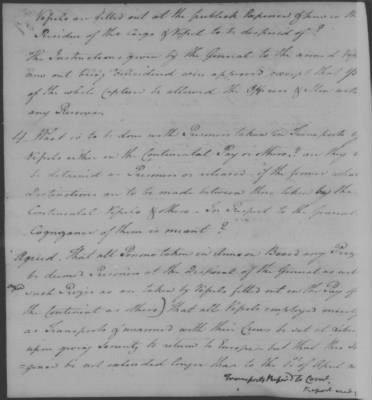 Vessels are fitted out at the publick Expence & how is the
Residue of the Cargo & Vessel to be disposed of?
The Instructions given by the General to the armed Vessels
now out being considered were approved, except that
of the whole Captures be allowed the Officers & Men with
any Reserve.
4. What is to be done with Prisoners taken in Transports by
Vessels either in the Continental Pay or others? are they
be detained as Prisoners or released. if the former what
Distinctions are to be made between those taken by the
Continental Vessels & others. In Respect to the General
Cognizance of them is meant?
Agreed. That all Persons taken in Arms on Board any Prize
be deemed Prisoners at the Disposal of the General as well
such Prizes as are taken by Vessels fitted out in the Pay of
the Continent as others) That all Vessels employed merely
as Transports & unarmed with their Crews be set at Liberty
upon giving Security to return to Europe but that this
be not extended longer than to the 1st of April
Transports Refer'd to Com.
Report made